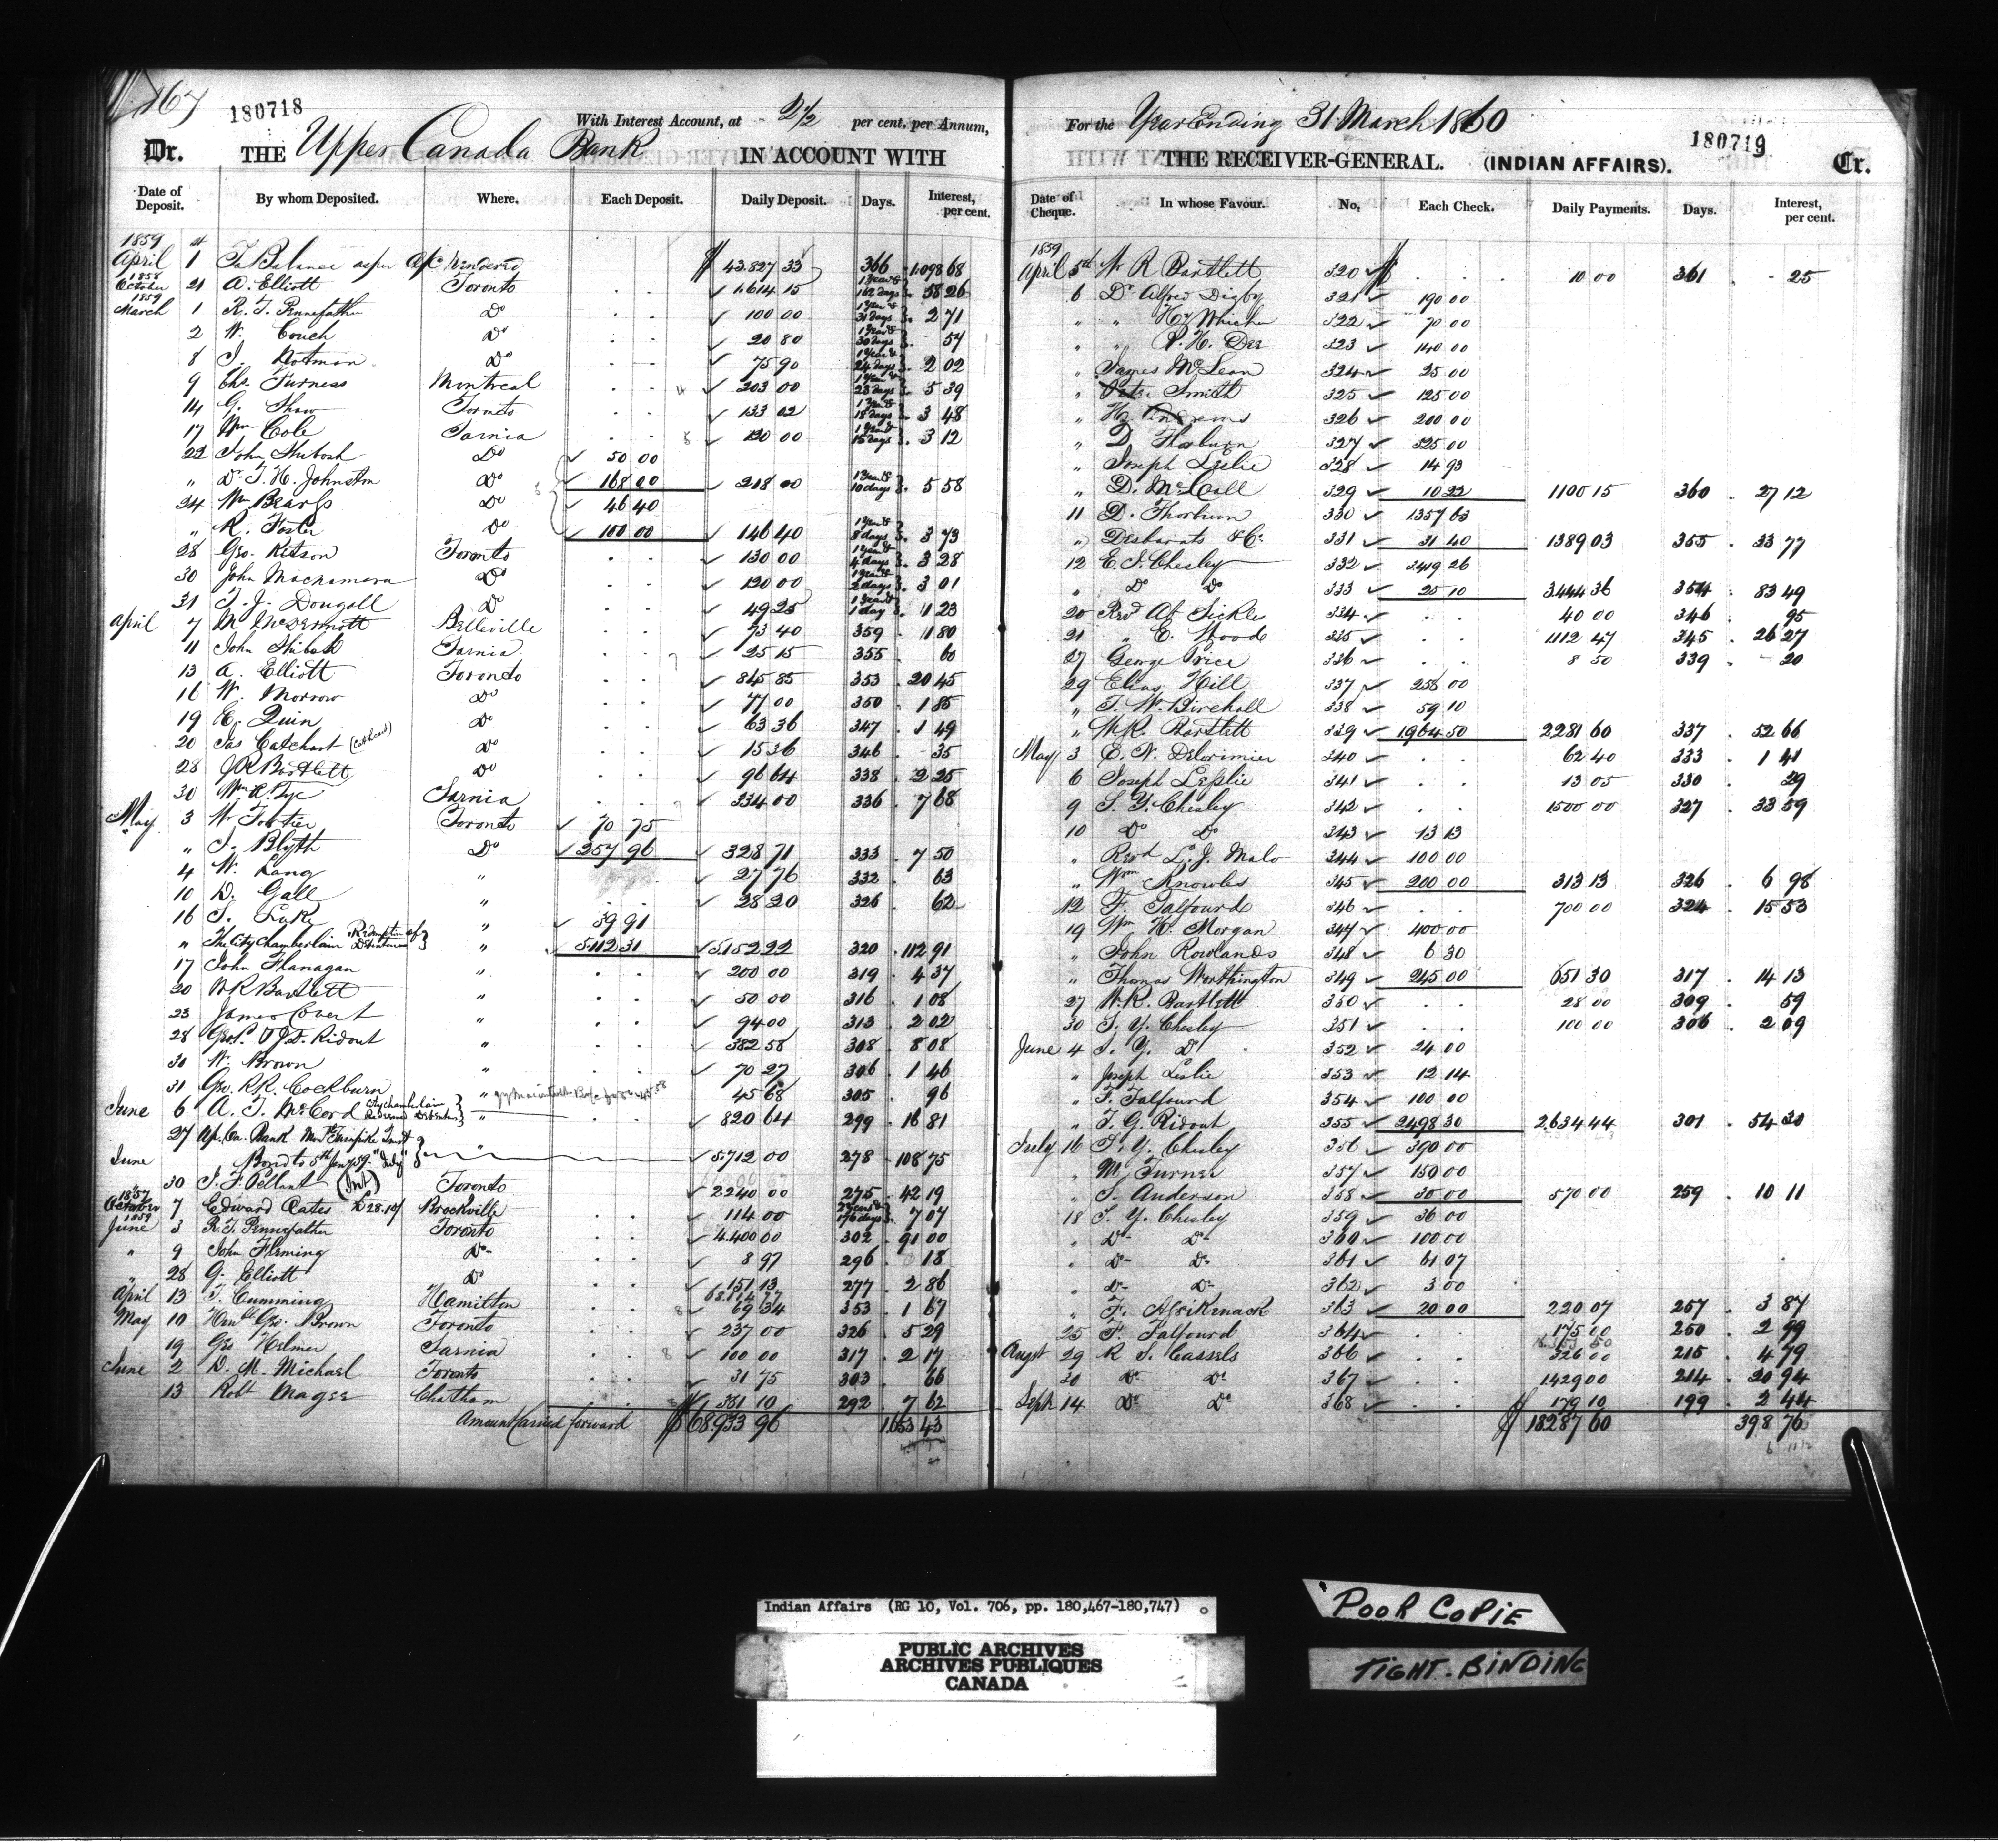 167
180718
With Interest Account, at 2½ per cent, per Annum,
Dr. THE Upper Canada Bank IN ACCOUNT WITH
Date of Deposit. By whom Deposited. Where. Each Deposit. Daily Deposit. Days. Interest, per cent.
1859
April 1 To Balance as per a/c rendered $ 43.827 33 366 1.098 68
1858 October 21 A. Elliott Toronto 1.614 15 1 Year & 162 days 58 26
1859 March 1 R. T. Pennefather Do 100 00 1 Year & 31 days 2 71
2 W. Couch Do 20 80 1 Year & 30 days 57
8 J. Notman Do 75 90 1 Year & 24 days 2 02
9 Chs. Furness Montreal 203 00 1 Year & 23 days 5 39
14 G. Shaw Toronto 133 02 1 Year & 18 days 3 48
17 Wm Cole Sarnia 120 00 1 Year & 15 days 3 12
22 John Shibosh Do 50 00
" Dr T. H. Johnston Do 168 00 218 00 1 Year & 10 days 5 58
24 Wm Bearss Do 46 40
" R. Foster Do 100 00 146 40 1 Year & 8 days 3 73
28 Geo. Ritson Toronto 130 00 1 Year & 4 days 3 28
30 John Macnamara Do 120 00 1 Year & 2 days 3 01
31 T. J. Dougall Do 49 25 1 Year & 1 day 1 23
April 7 M. McDermott Belleville 73 40 359 1 80
11 John Shibosh Sarnia 25 15 355 60
13 A. Elliott Toronto 845 85 353 20 45
16 W. Morrow Do 77 00 350 1 85
19 E. Quin Do 63 36 347 1 49
20 Jas Catchart (Cathcart) Do 15 36 346 35
28 W R Bartlett Do 96 64 338 2 25
30 Wm R. Tye Sarnia 334 00 336 7 68
May 3 W. Fortier Toronto 70 75
" J. Blyth Do 257 96 328 71 333 7 50
4 W. Lang " 27 76 332 63
10 D. Gall " 28 20 326 62
16 S. Luke " 39 91
" The City Chamberlain Redemption of Debentures " 5.112 31 5.152 22 320 112 91
17 John Flanagan " 200 00 319 4 37
20 W R Bartlett " 50 00 316 1 08
23 James Covert " 94 00 313 2 02
28 Geo. P. & J. D. Ridout " 382 58 308 8 08
30 W. Brown " 70 27 306 1 46
31 Geo. R.R. Cockburn " 45 68 305 96
June 6 A. T. McCord City Chamberlain Redeemed Debentures " 820 64 299 16 81
27 Up. Ca. Bank Mont Turnpike Trust "
June Bond to 5th Jany 59 "July" 5.712 00 278 108 75
" 30 J. F. Pellant (Int) Toronto 2240 00 275 42 19
1857 October 7 Edward Oates £28.10/ Brockville 114 00 2 Years & 176 days 7 07
1859 June 3 R. T. Pennefather Toronto 4.400 00 302 91 00
" 9 John Fleming Do 8 97 296 18
" 28 G. Elliott Do 151 13 277 2 86
April 13 T. Cumming Hamilton 69 34 353 1 67
May 10 Honble Geo. Brown Toronto 237 00 326 5 29
19 Geo Helmer Sarnia 100 00 317 2 17
June 2 D. M. Michael Toronto 31 75 303 66
13 Robt Magee Chatham 351 10 292 7 62
Amount Carried forward $ 68.933 96 1.653 43
For the Year Ending 31 March 1860
180719
THE RECEIVER-GENERAL. (INDIAN AFFAIRS). Cr.
Date of Cheque. In whose Favour. No, Each Check. Daily Payments. Days. Interest, per cent.
1859
April 5th W R Bartlett 320 $ 10 00 361 25
6 Dr Alfred Digby 321 190 00
" " Hy Whicher 322 70 00
" " P. H. Dee 323 140 00
" James McLean 324 25 00
" Peter Smith 325 125 00
" 326 200 00
" D. Thorburn 327 325 00
" Joseph Leslie 328 14 93
" D. McCall 329 10 22 1100 15 360 27 12
11 D. Thorburn 330 1357 63
" Desbarats & Co 331 31 40 1389 03 355 33 77
12 E. S. Chesley 332 3419 26
" Do Do 333 25 10 3.444 36 354 83 49
20 Revd Ab Sickles 334 40 00 346 95
21 " E. Wood 335 1112 47 345 26 27
27 George Price 336 8 50 339 20
29 Elias Hill 337 258 00
" T. W. Birchall 338 59 10
" W. R. Bartlett 339 1.964 50 2281 60 337 52 66
May 3 E. N. DeLorimier 340 62 40 333 1 41
6 Joseph Leslie 341 13 05 330 29
9 S. Y. Chesley 342 1500 00 327 33 59
10 Do Do 343 13 13
" Revd L. J. Malo 344 100 00
" Wm Knowles 345 200 00 313 13 326 6 98
12 F. Talfourd 346 700 00 324 15 53
19 Wm H. Morgan 347 400 00
" John Rowlands 348 6 30
" Thomas Worthington 349 245 00 651 30 317 14 13
27 W. R. Bartlett 350 28 00 309 59
30 S. Y. Chesley 351 100 00 306 2 09
June 4 S. Y. Do 352 24 00
" Joseph Leslie 353 12 14
" F. Talfourd 354 100 00
" T. G. Ridout 355 2.498 30 2.634 44 301 54 30
July 16 S. Y. Chesley 356 390 00
" M. Turner 357 150 00
" T. Anderson 358 30 00 570 00 259 10 11
18 S. Y. Chesley 359 36 00
" Do Do 360 100 00
" Do Do 361 61 07
" Do Do 362 3 00
" F. Assikinack 363 20 00 220 07 257 3 87
25 F. Talfourd 364 175 00 250 2 99
Augst 29 R S. Cassels 366 326 00 215 4 79
30 Do Do 367 1429 00 214 20 94
Sepr 14 Do Do 368 179 10 199 2 44
$ 18.287 60 398 76
Indian Affairs (RG 10, Vol. 706, pp. 180,467-180,747)
PUBLIC ARCHIVES
ARCHIVES PUBLIQUES
CANADA
POOR COPIE
TIGHT-BINDING